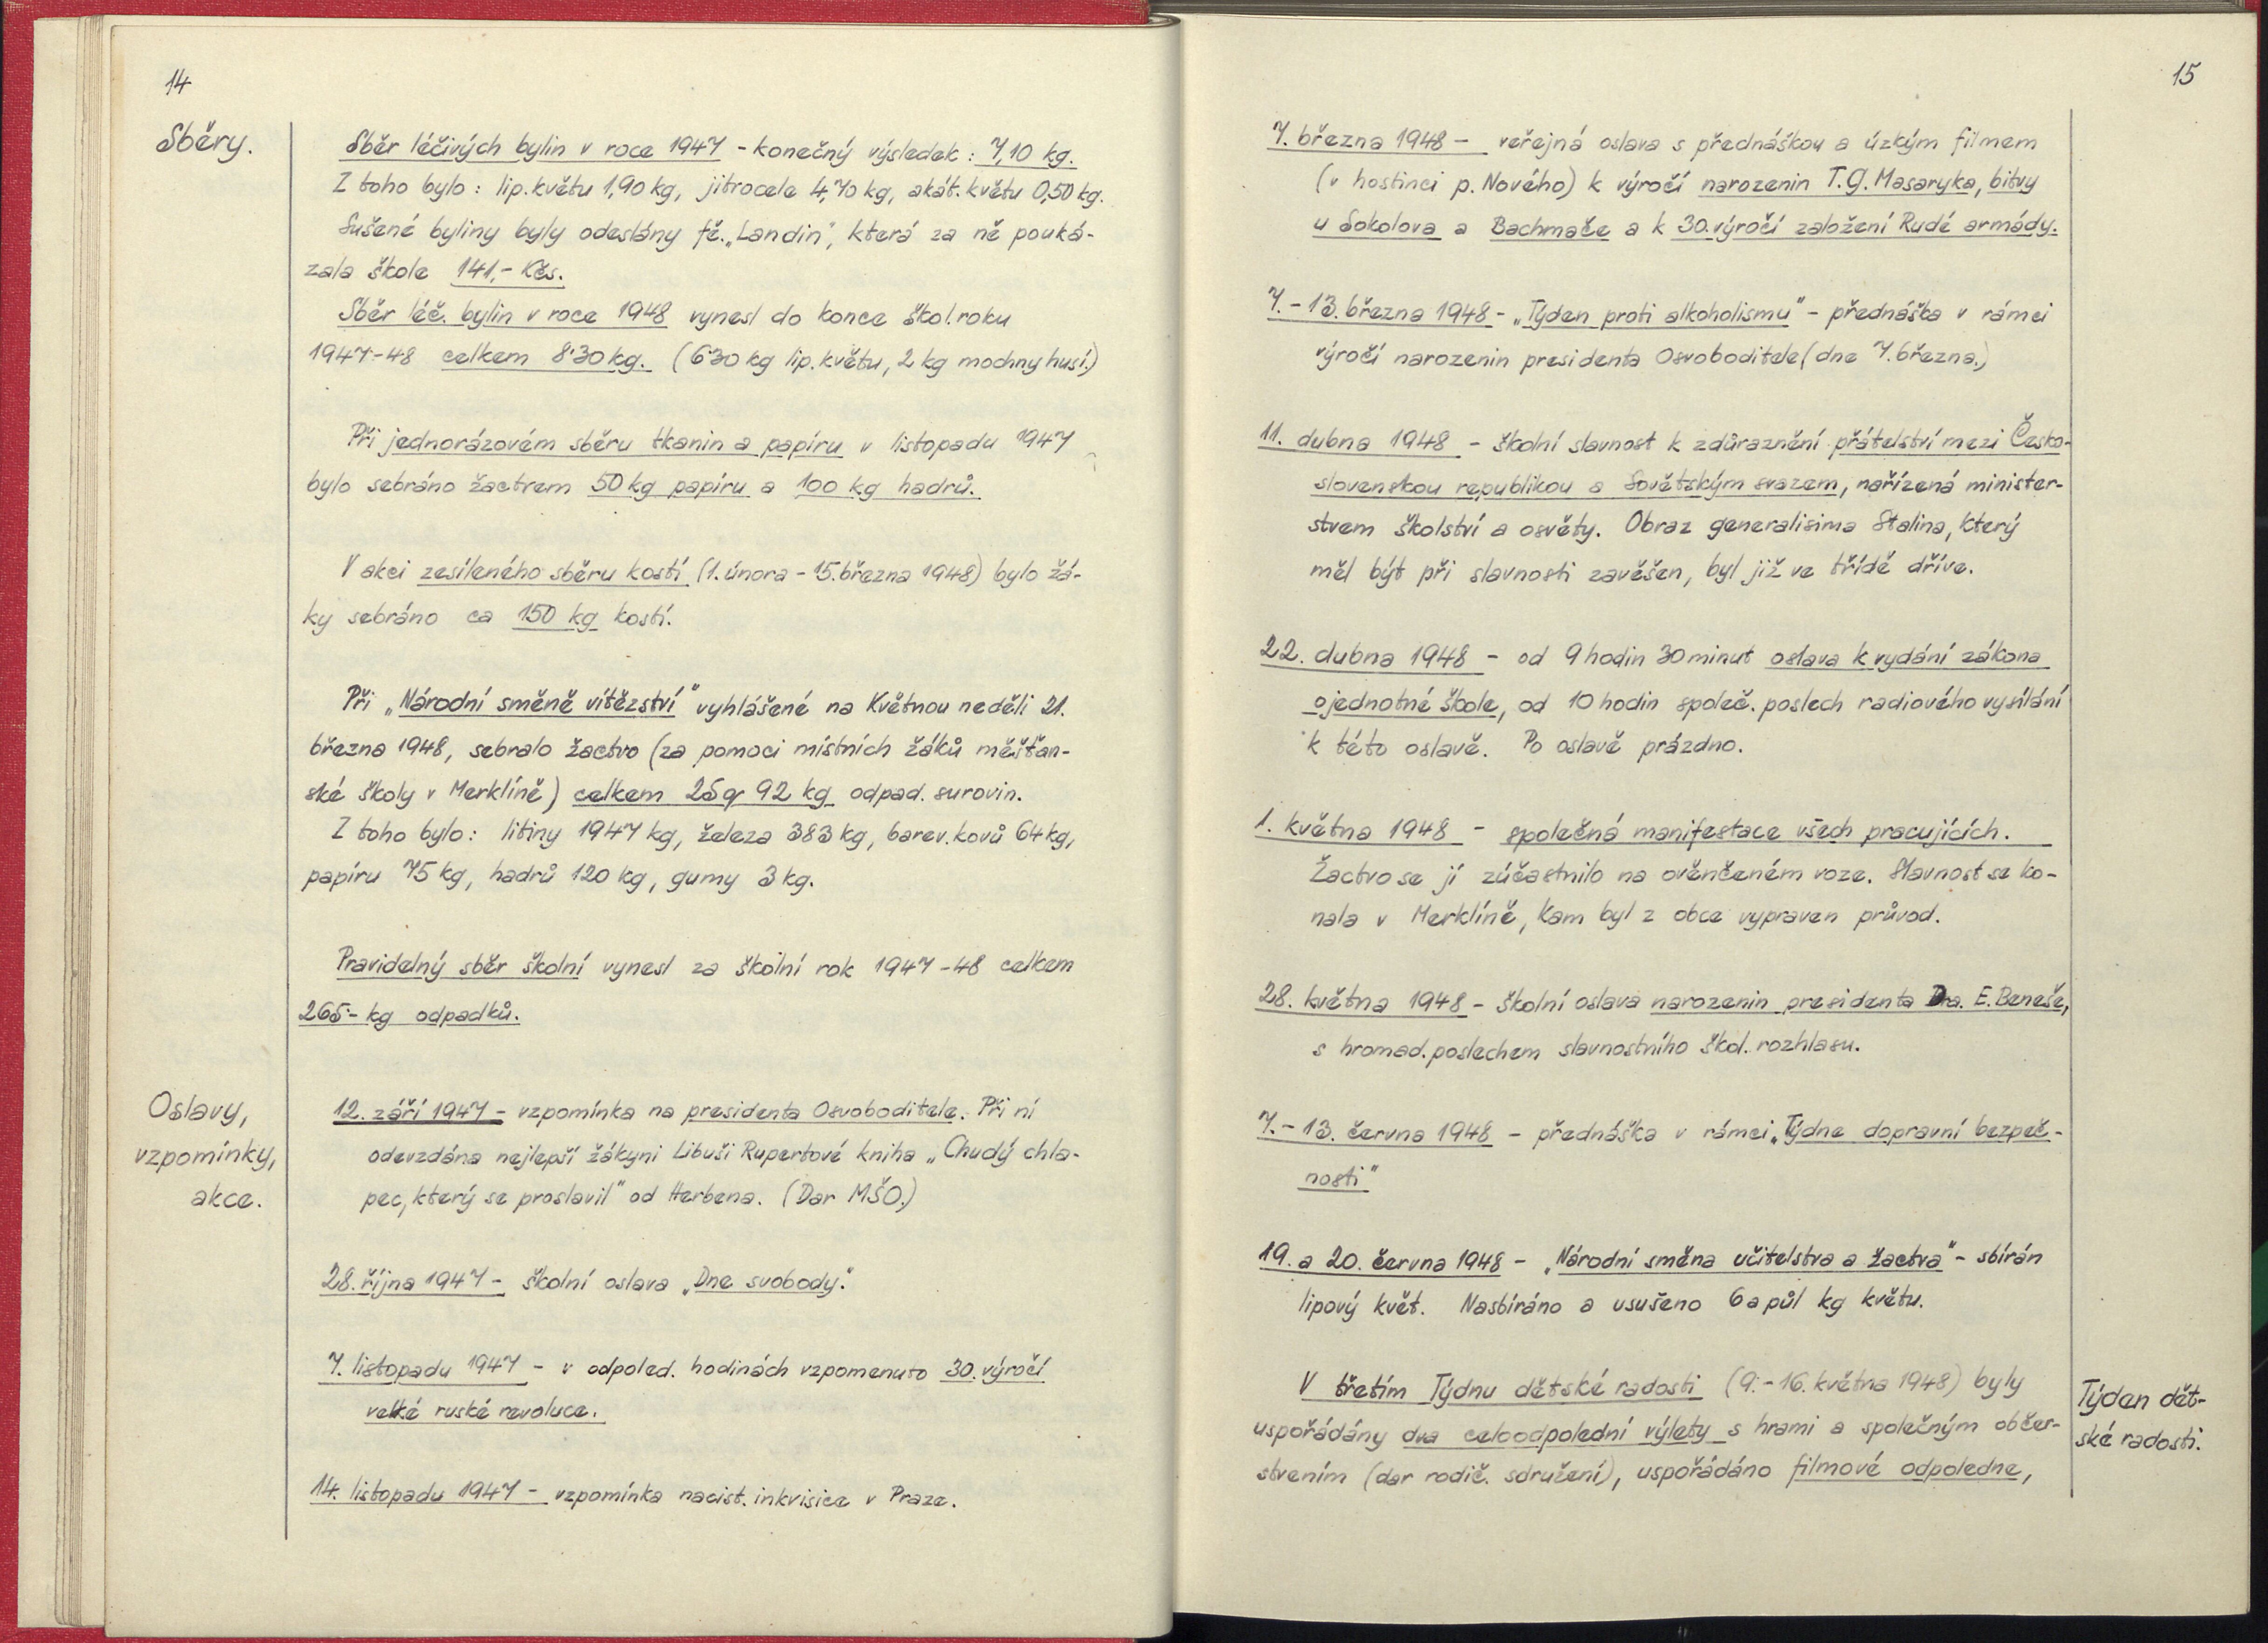 14
Sběry.
Sběr léčivých bylin v roce 1947 - konečný výsledek: 7,10 kg.
Z toho bylo: lip. květu 1,90 kg, jitrocele 4,70 kg, akát. květu 0,50 kg.
Sušené byliny byly odeslány fě. „Landin", která za ně pouká-
zala škole 141,- Kčs.
Sběr léč. bylin v roce 1948 vynesl do konce škol. roku
1947-48 celkem 8·30 kg. (6·30 kg lip. květu, 2 kg mochny husí.)
Při jednorázovém sběru tkanin a papíru v listopadu 1947
bylo sebráno žactvem 50 kg papíru a 100 kg hadrů.
V akci zesíleného sběru kostí (1. února - 15. března 1948) bylo žá-
ky sebráno ca 150 kg kostí.
Při „Národní směně vítězství" vyhlášené na Květnou neděli 21.
března 1948, sebralo žactvo (za pomoci místních žáků měšťan-
ské školy v Merklíně) celkem 25 q 92 kg odpad. surovin.
Z toho bylo: litiny 1947 kg, železa 383 kg, barev. kovů 64 kg,
papíru 75 kg, hadrů 120 kg, gumy 3 kg.
Pravidelný sběr školní vynesl za školní rok 1947-48 celkem
265·- kg odpadků.
Oslavy,
vzpomínky,
akce.
12. září 1947 - vzpomínka na presidenta Osvoboditele. Při ní
odevzdána nejlepší žákyni Libuši Rupertové kniha „Chudý chla-
pec, který se proslavil" od Herbena. (Dar MŠO.)
28. října 1947 - školní oslava „Dne svobody".
7. listopadu 1947 - v odpoled. hodinách vzpomenuto 30. výročí
velké ruské revoluce.
14. listopadu 1947 - vzpomínka nacist. inkvisice v Praze.
15
7. března 1948 - veřejná oslava s přednáškou a úzkým filmem
(v hostinci p. Nového) k výročí narozenin T. G. Masaryka, bitvy
u Sokolova a Bachmače a k 30. výročí založení Rudé armády.
7. - 13. března 1948 - „Týden proti alkoholismu" - přednáška v rámci
výročí narozenin presidenta Osvoboditele (dne 7. března.)
11. dubna 1948 - školní slavnost k zdůraznění přátelství mezi Česko-
slovenskou republikou a Sovětským svazem, nařízená minister-
stvem školství a osvěty. Obraz generalisima Stalina, který
měl být při slavnosti zavěšen, byl již ve třídě dříve.
22. dubna 1948 - od 9 hodin 30 minut oslava k vydání zákona
o jednotné škole, od 10 hodin společ. poslech radiového vysílání
k této oslavě. Po oslavě prázdno.
1. května 1948 - společná manifestace všech pracujících.
Žactvo se jí zúčastnilo na ověnčeném voze. Slavnost se ko-
nala v Merklíně, kam byl z obce vypraven průvod.
28. května 1948 - školní oslava narozenin presidenta Dra. E. Beneše,
s hromad. poslechem slavnostního škol. rozhlasu.
7. - 13. června 1948 - přednáška v rámci „Týdne dopravní bezpeč-
nosti"
19. a 20. června 1948 - „Národní směna učitelstva a žactva" - sbírán
lipový květ. Nasbíráno a usušeno 6 a půl kg květu.
V třetím Týdnu dětské radosti (9. - 16. května 1948) byly
uspořádány dva celoodpolední výlety s hrami a společným občer-
stvením (dar rodič. sdružení), uspořádáno filmové odpoledne,
Týden dět-
ské radosti.